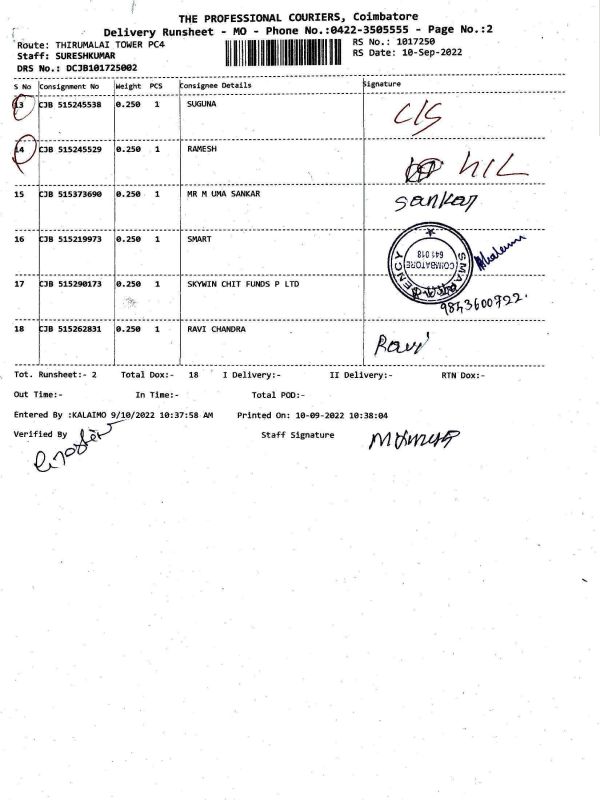 THE PROFESSIONAL COURIERS, Coimbatore
Delivery Runsheet - MO - Phone No.:0422-3505555 - Page No.:2
Route: THIRUMALAI TOWER PC4
RS No.: 1017250
Staff: SURESHKUMAR
RS Date: 10-Sep-2022
DRS No.: DCJB101725002
S No Consignment No Weight PCS Consignee Details Signature
13 CJB 515245538 0.250 1 SUGUNA
14 CJB 515245529 0.250 1 RAMESH
15 CJB 515373690 0.250 1 MR M UMA SANKAR Sankar
16 CJB 515219973 0.250 1 SMART
COIMBATORE
641 018
17 CJB 515290173 0.250 1 SKYWIN CHIT FUNDS P LTD
9843600722.
18 CJB 515262831 0.250 1 RAVI CHANDRA Ravi
Tot. Runsheet:- 2 Total Dox:- 18 I Delivery:- II Delivery:- RTN Dox:-
Out Time:- In Time:- Total POD:-
Entered By :KALAIMO 9/10/2022 10:37:58 AM Printed On: 10-09-2022 10:38:04
Verified By Staff Signature